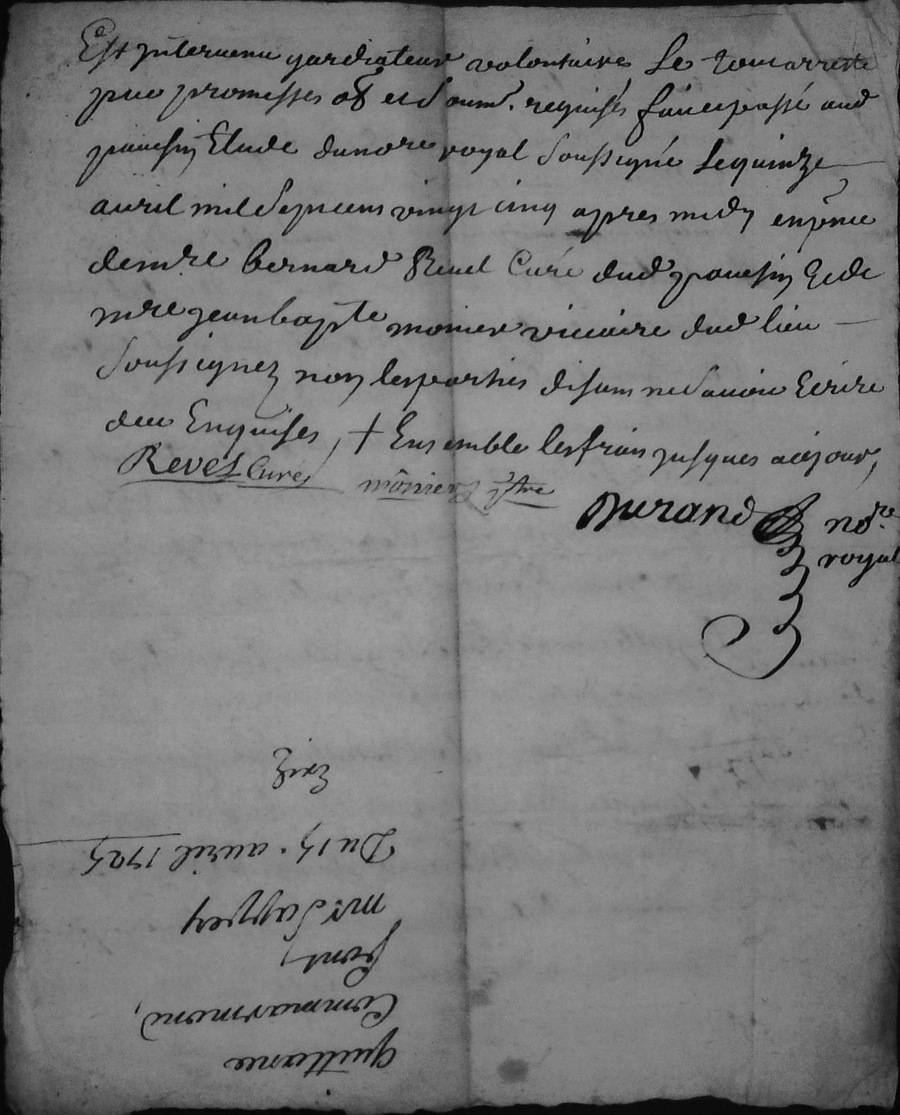 Est intervenu gardiateur volontaire Le tout arresté
par promesses ob et soumn. requises fait et passé aud
pousin Etude du nore royal soussigné le quinze
auril mil sept cens vingt cinq apres midy en pnce
de mre bernard Revel Curé dud pousin Et de
mre jean bapte monier vicaire dud lieu
soussignez non les parties disant ne sauoir Ecrire
de ce Enquises, + Ensemble les frais jusques a ce jour,
Revel Curé monier ptre
Durand nore
royal
quittance
Commarmond,
sont,
mr Sappey
Du 15. auril 1725